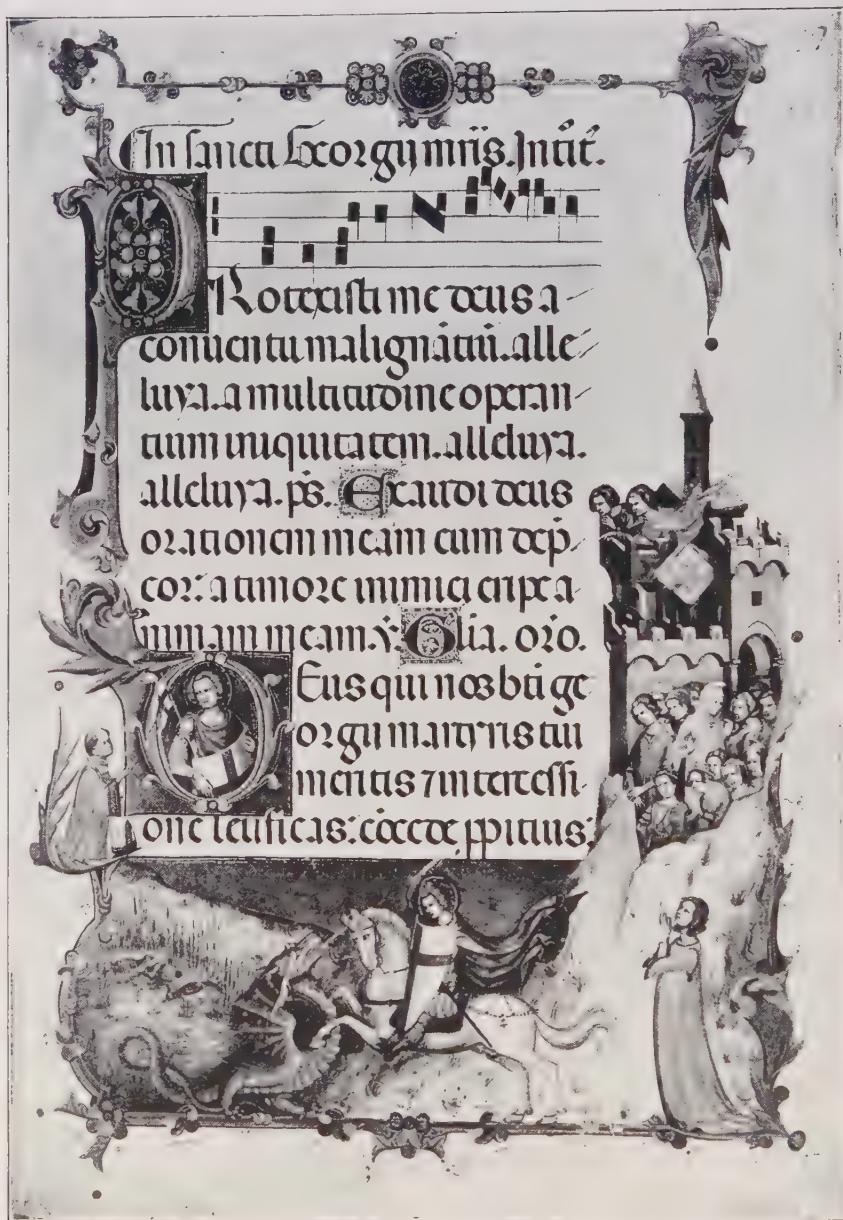 In sancti Georgij mr̄is. Intit̄.
PRotexisti me deus a
conuentu malignātiū. alle
luya. a multitudine operan
tium iniquitatem. alleluya.
alleluya. ps. Exaudi deus
orationem meam cum dep̄
cor: a timore inimici eripe a
nimam meam. ỹ. Glīa. oro.
Deus qui nos bti ge
orgii martyris tui
meritis ⁊ intercessi
one letificas: cōcede ꝓpitius: